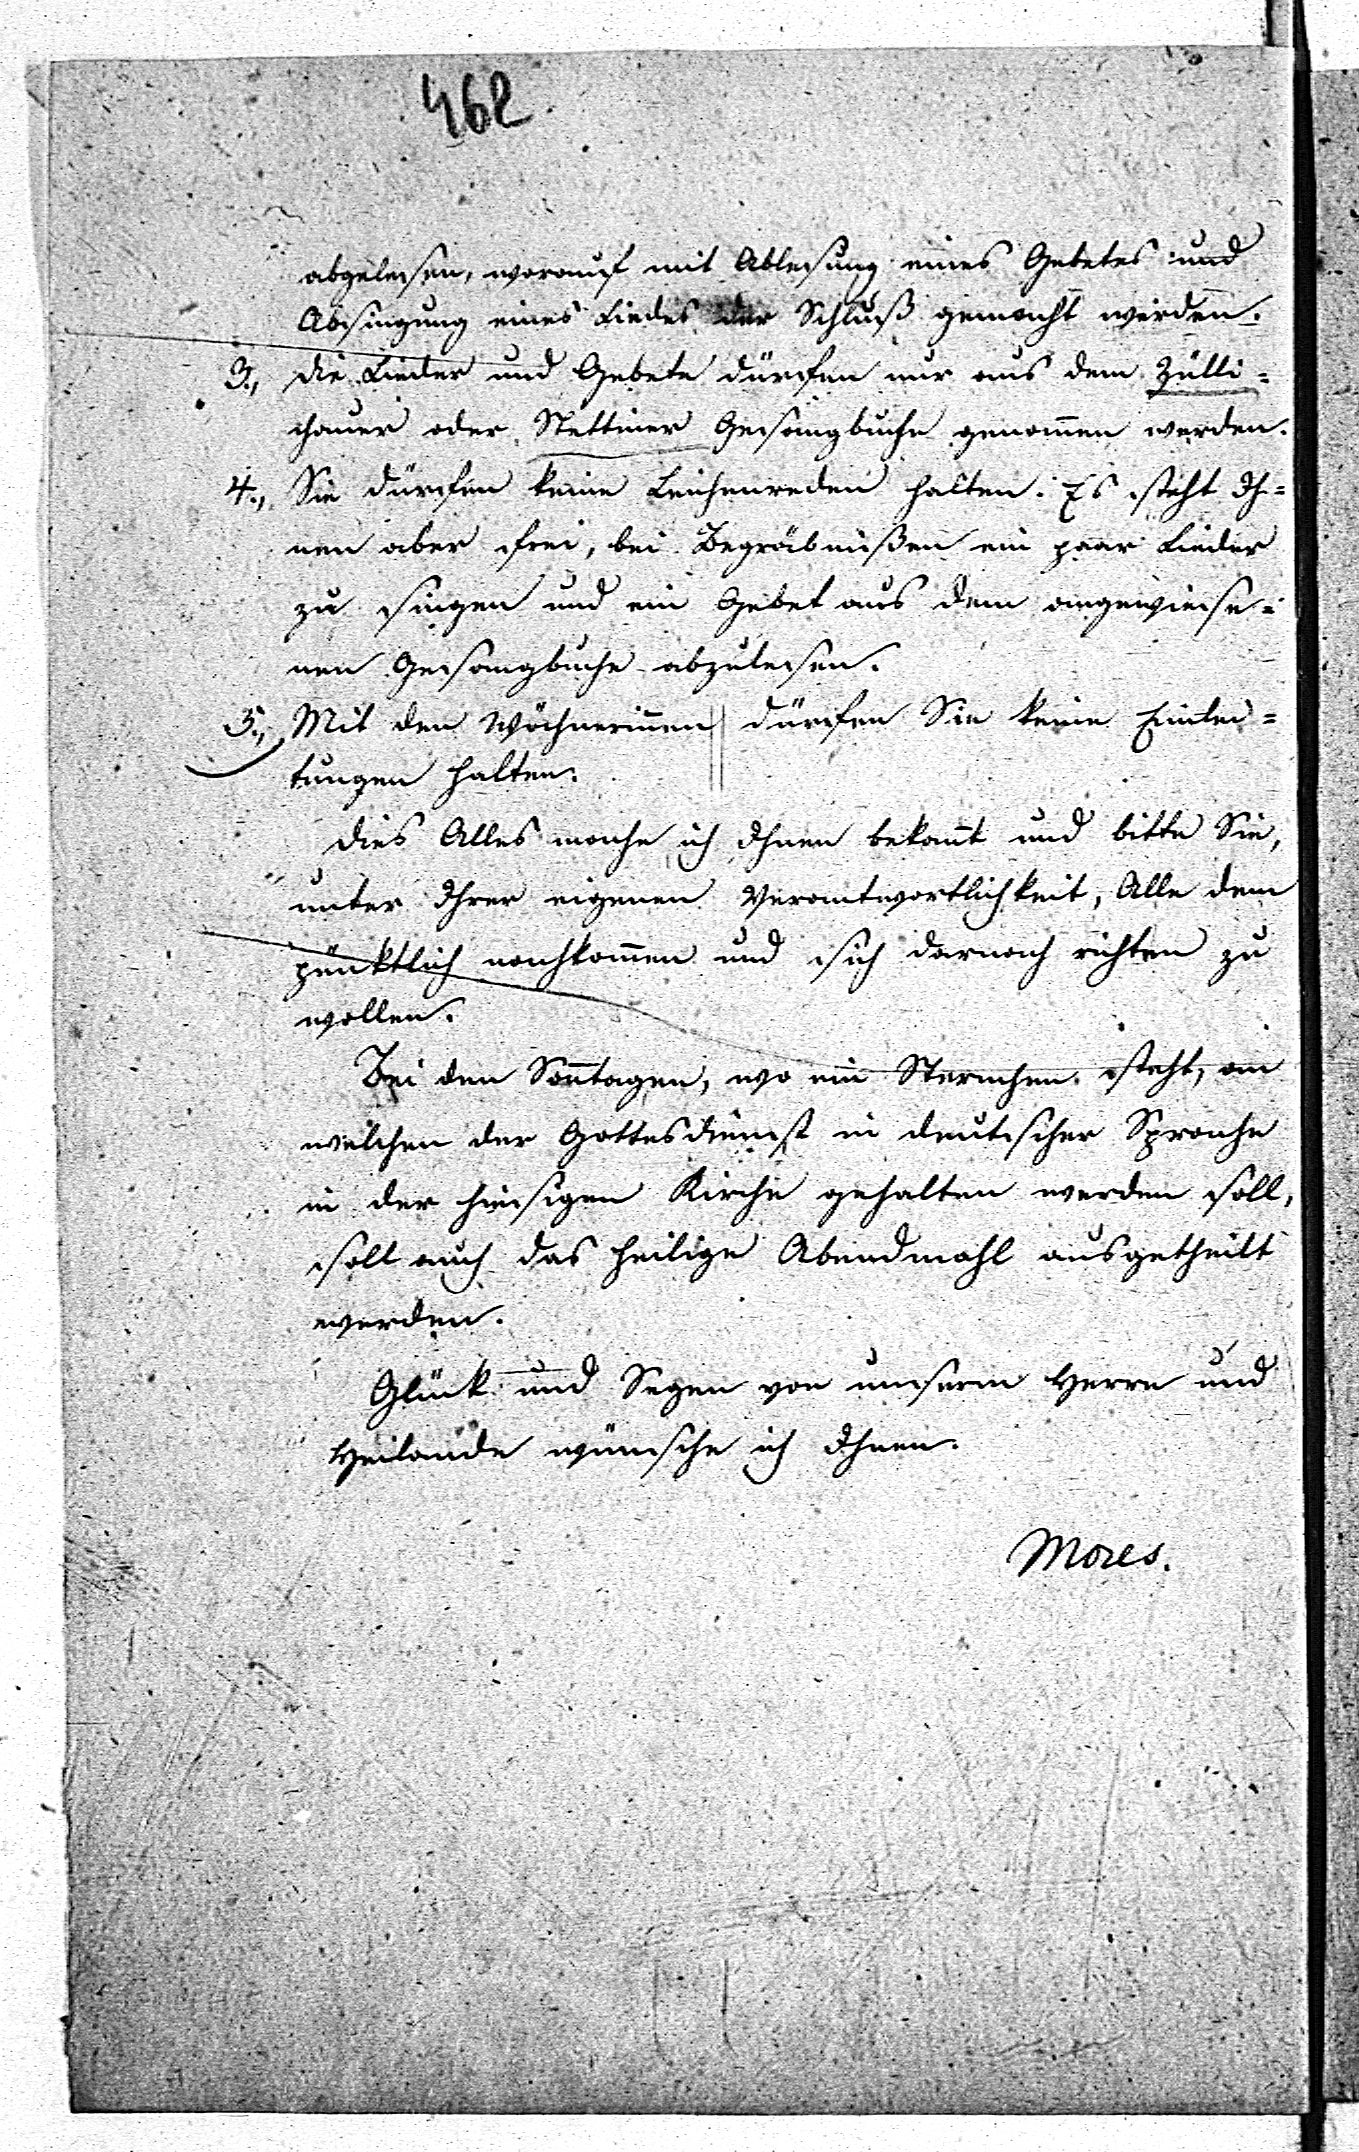 462
abgelesen, worauf mit Ablesung eines Gebetes und
Absingung eines Liedes der Schluß gemacht werden.
3., Die Lieder und Gebete dürfen nur aus dem Zülli=
chauer oder Stettiner Gesangbuche genom̄en werden.
4., Sie dürfen keine Leichenreden halten. Es steht Ih=
nen aber frei, bei Begräbnißen ein paar Lieder
zu singen und ein Gebet aus dem angewiese=
nen Gesangbuche abzulesen.
5., Mit den Wöchnerin̄en dürfen Sie keine Einlei=
tungen halten.
Dies Alles mache ich Ihnen bekan̄t und bitte Sie,
unter Ihrer eigenen Verantwortlichkeit, Alle dem
pünktlich nachkom̄en und sich darnach richten zu
wollen.
Bei den Son̄tagen, wo ein Sternchen steht, an
welchen der Gottesdienst in deutscher Sprache
in der hiesigen Kirche gehalten werden soll,
soll auch das heilige Abendmahl ausgetheilt
werden.
Glück und Segen von unserm Herrn und
Heilande wünsche ich Ihnen.
Mores.